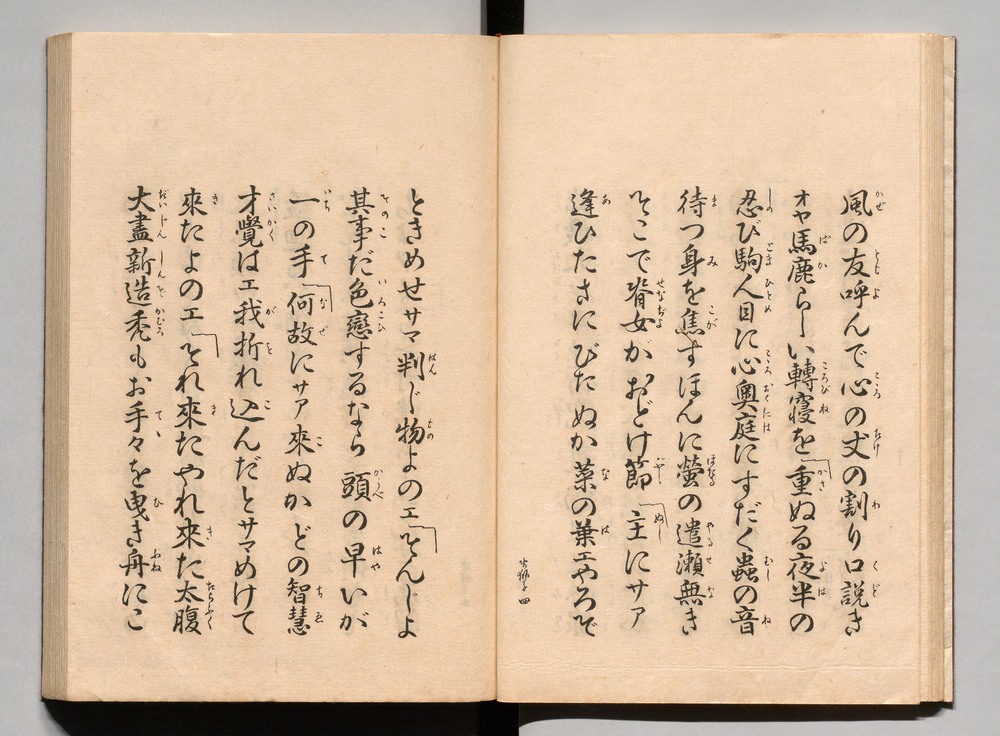 風の友呼んで心の丈の割り口説き
オヤ馬鹿らしい轉寢を「重ぬる夜半の
忍び駒人目に心奧庭にすだく蟲の音
待つ身を焦すほんに螢の遣瀨無き
そこで脊女がおどけ節「主にサア
逢ひたさにびたぬか菜の葉エやろそ
四
ときめせサマ判じ物よのエ「そんじよ
其事だ色戀するなら頭の早いが
一の手「何故にサア來ぬかどの智慧
才覺はエ我折れ込んだとサマめけて
來たよのエ「それ來たやれ來た太腹
大盡新造禿もお手々を曳き舟にこ